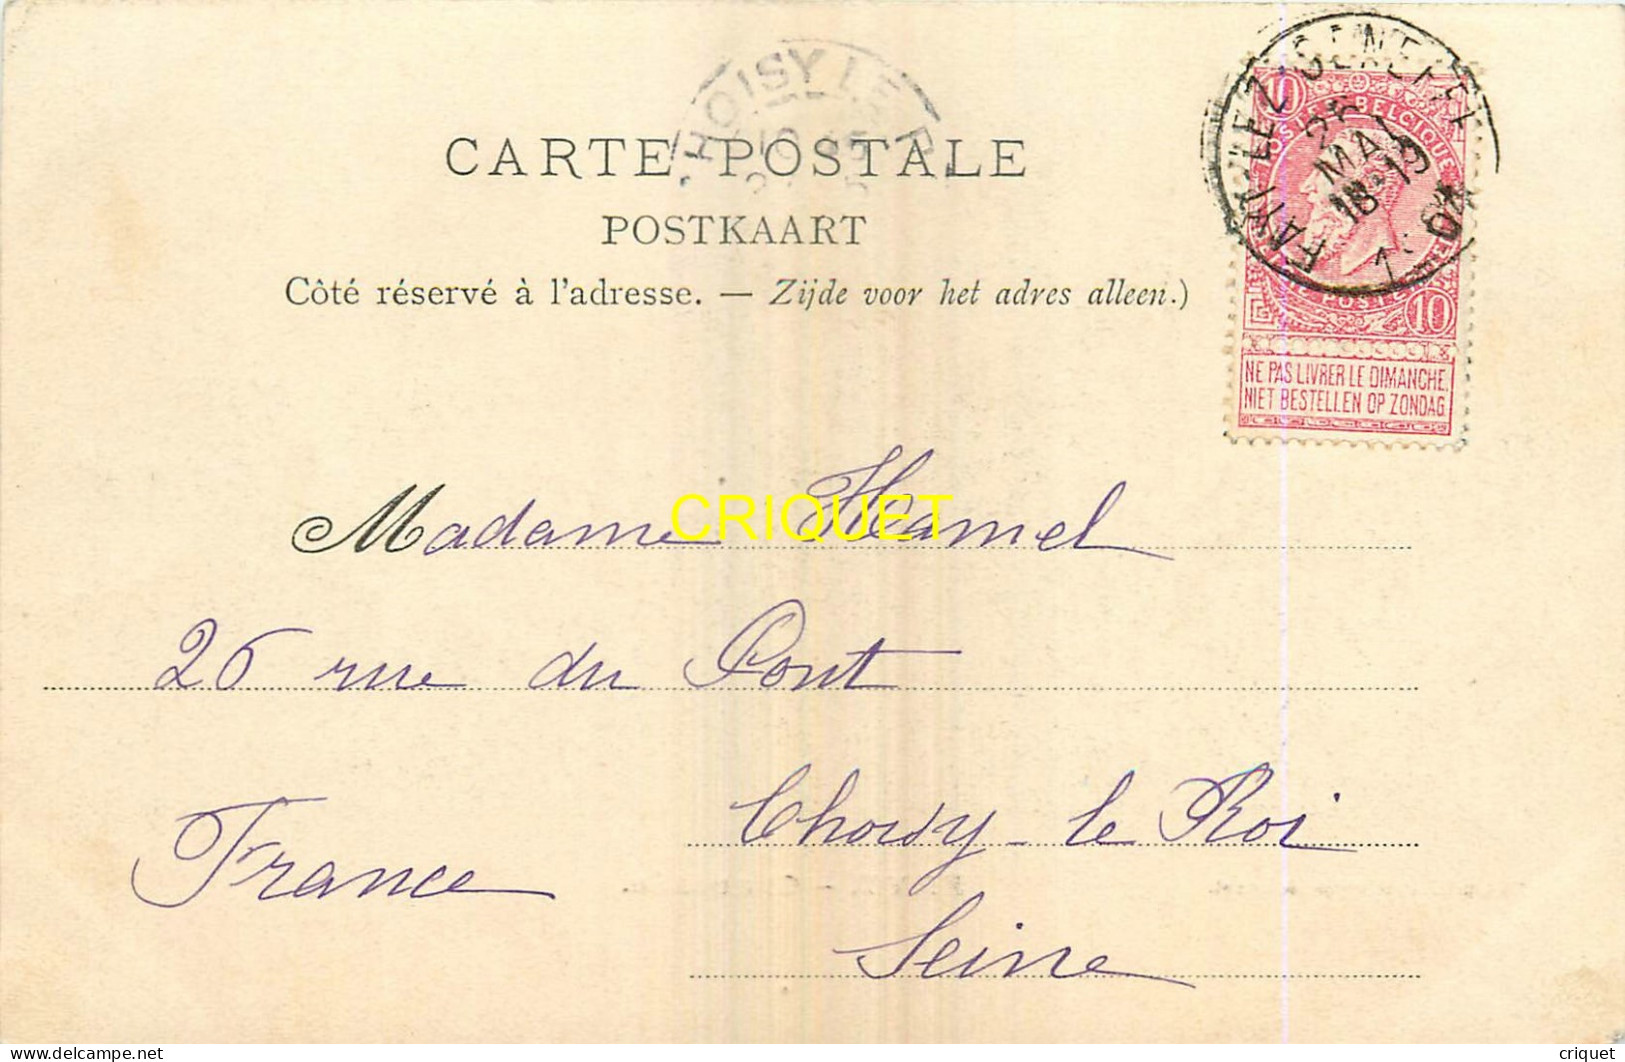 CHOISY LE R
FAYT LEZ SENEFFE
25
MAI
18-19
POSTE BELGIQUE
10
CARTE POSTALE
POSTKAART
Côté réservé à l'adresse. — Zijde voor het adres alleen.)
10
NE PAS LIVRER LE DIMANCHE.
NIET BESTELLEN OP ZONDAG
Madame Hamel
CRIQUET
26 rue du Pont
Choisy-le Roi
France
Seine
delcampe.net
criquet